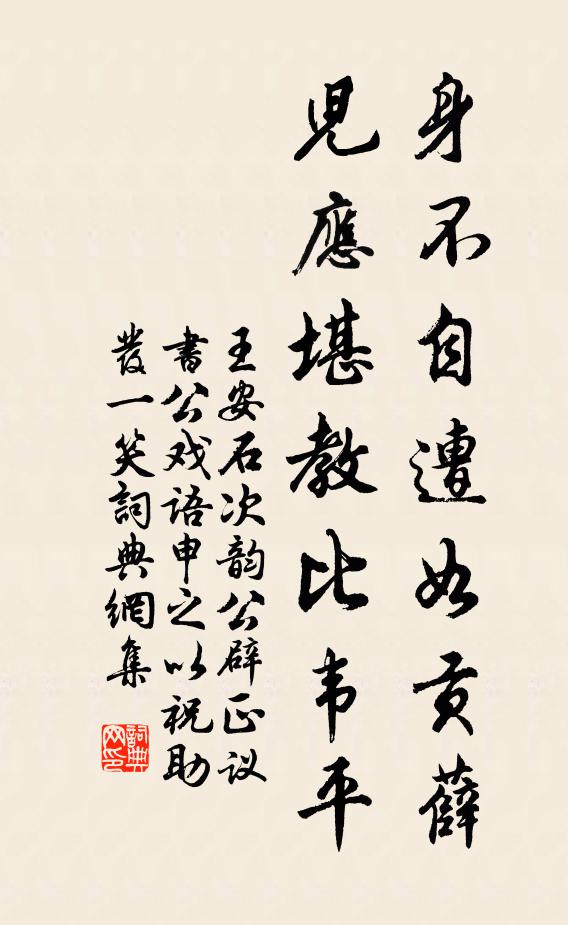 身不自遭如贡薛
儿應堪教比韦平
王安石次韵公辟正议
書公戏语申之以祝助
發一笑詞典網集
詞典网印